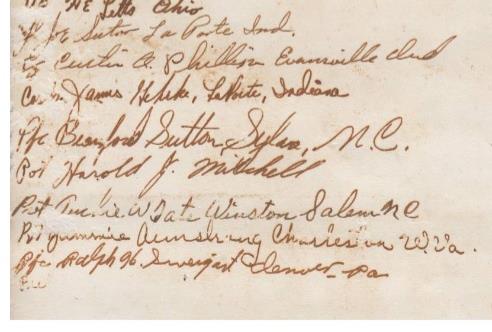 Ohio
Sutor La Porte Ind.
Curtis A. Phillips Evansville Ind
James Heluke, LaPorte, Indiana
Pfc Beauford Sutton Sylva, N.C.
Pvt Harold J. Mitchell
Pvt W Tate Winston Salem NC
Pvt Jimmie Armstrong Charleston W.Va.
Pfc Ralph H. Sweigart Denver, Pa